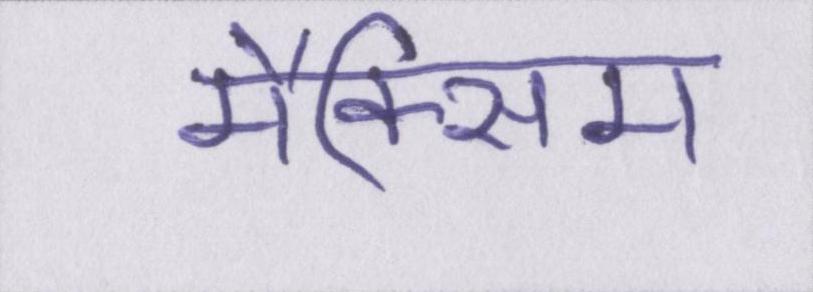 मैक्सिम